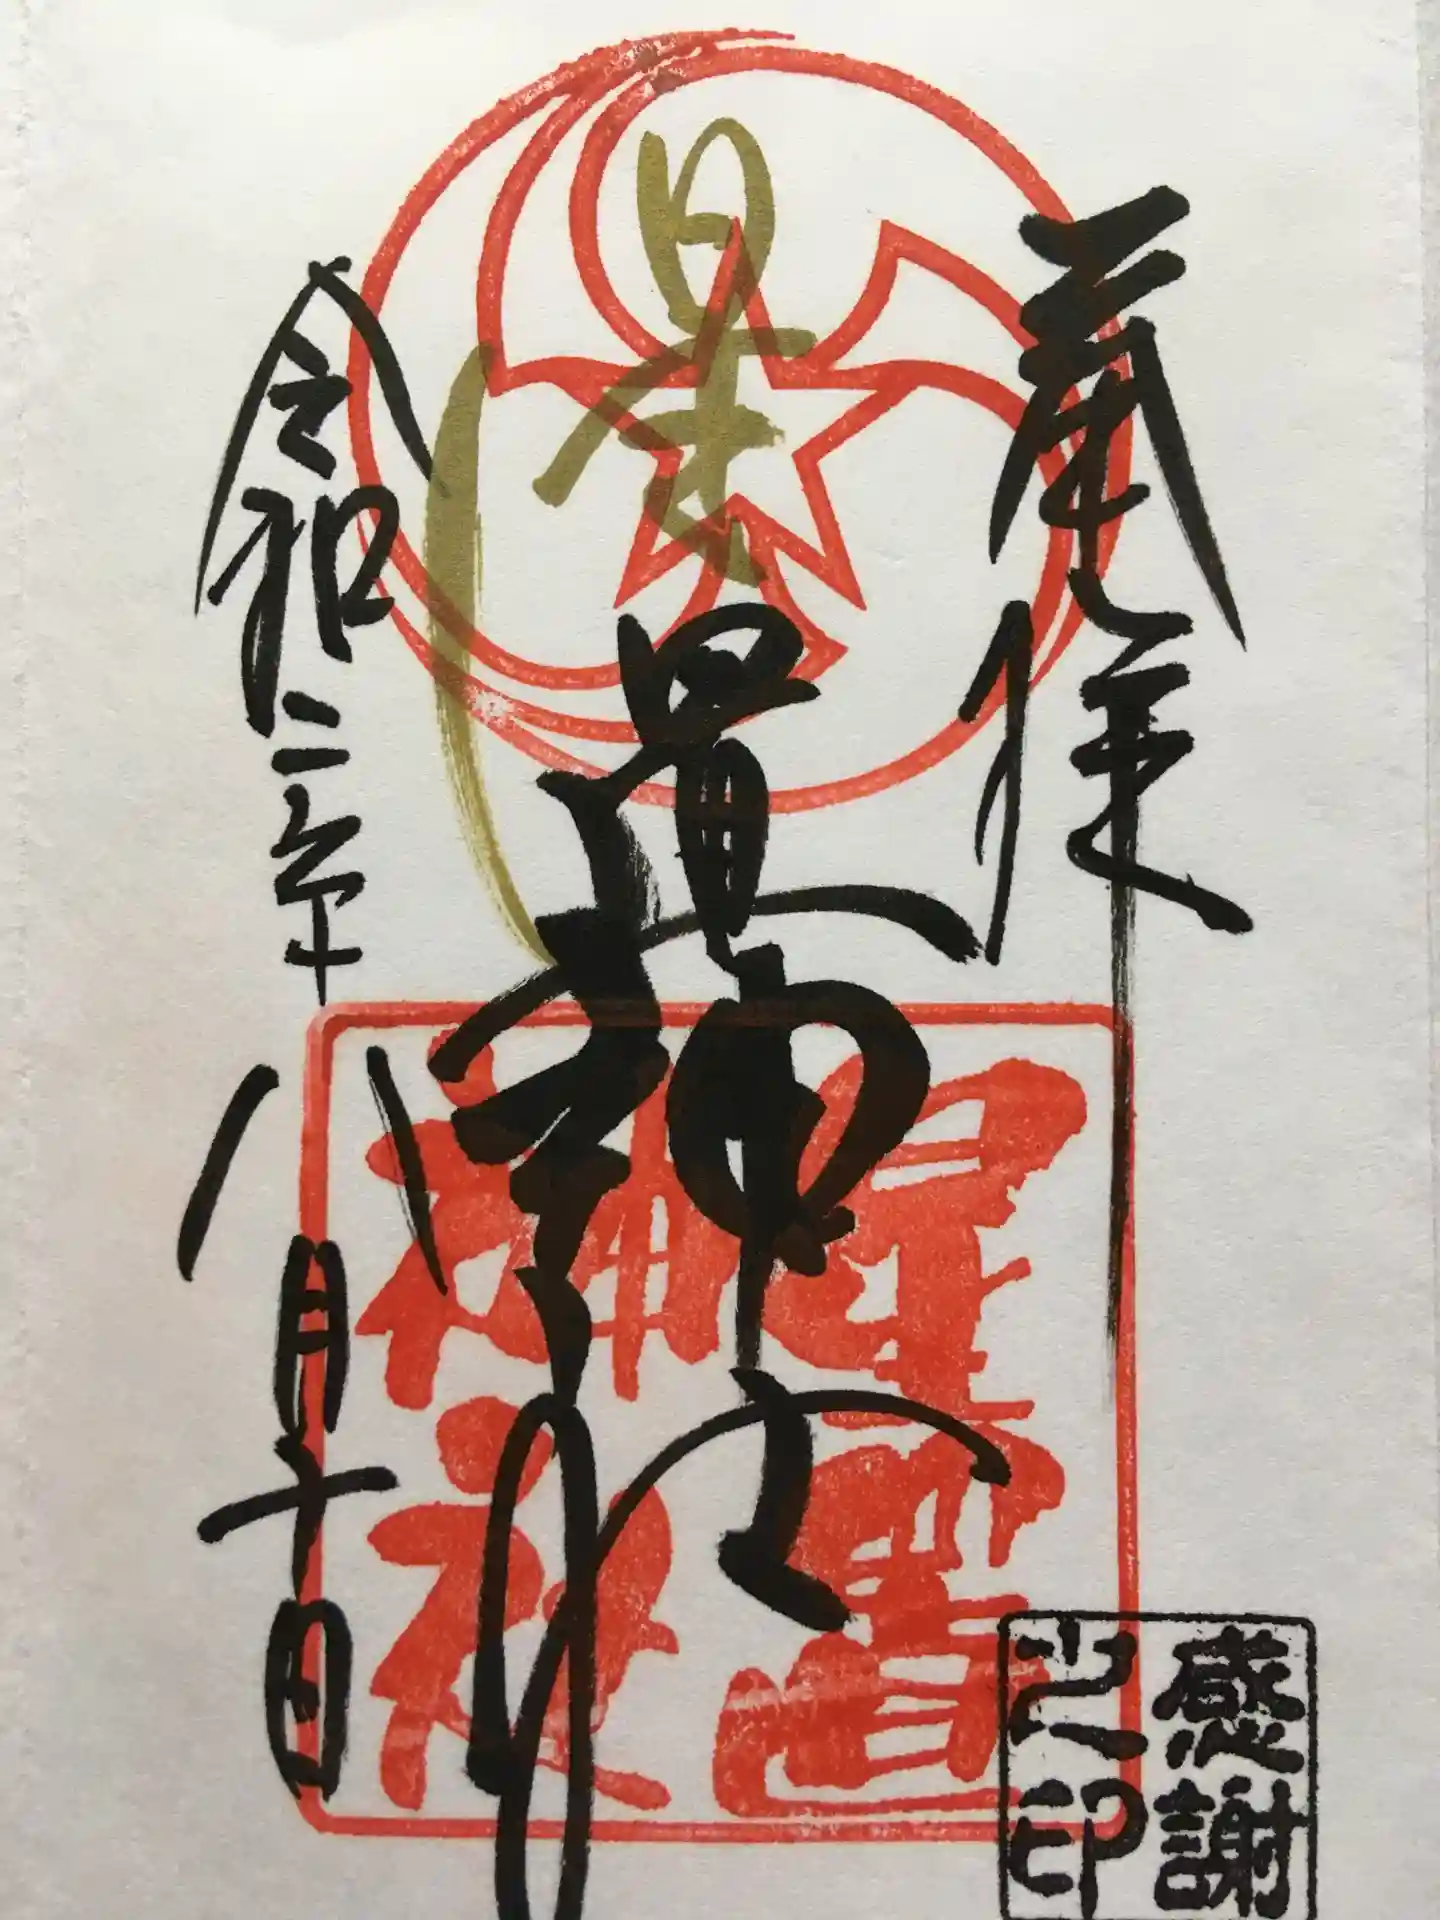 奉拝
星置神社
令和二年
八月十日
星置
神社
感謝
之印